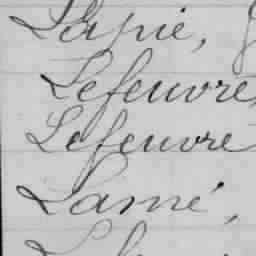 Lapie,
Lefeuvre,
Lefeuvre
Lamé,